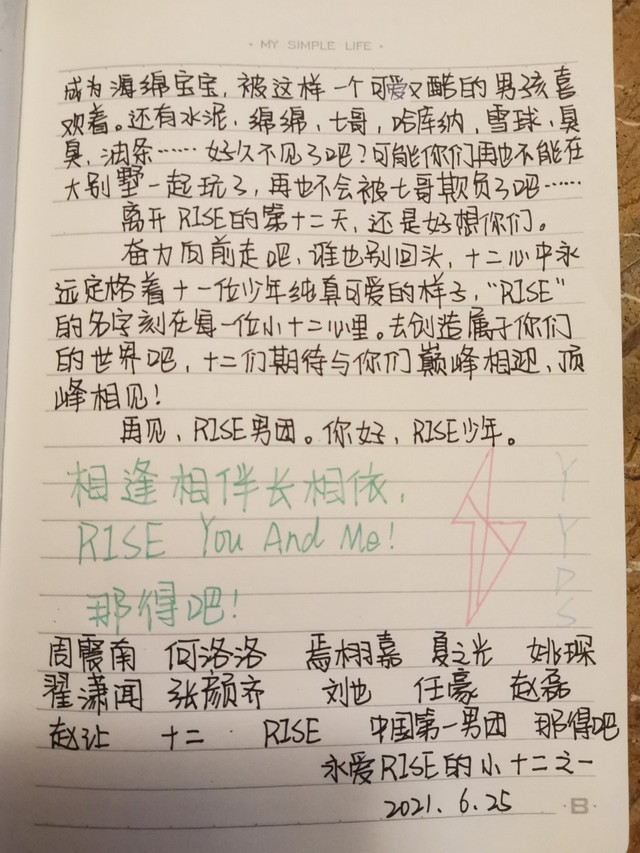 · MY SIMPLE LIFE ·
成为海绵宝宝，被这样一个可爱又酷的男孩喜
欢着。还有水泥，绵绵，七哥，哈库纳，雪球，臭
臭，油条……好久不见了吧？可能你们再也不能在
大别墅一起玩了，再也不会被七哥欺负了吧……
离开RISE的第十二天，还是好想你们。
奋力向前走吧，谁也别回头，十二心中永
远定格着十一位少年纯真可爱的样子，“RISE”
的名字刻在每一位小十二心里。去创造属于你们
的世界吧，十二们期待与你们巅峰相迎，顶
峰相见！
再见，RISE男团。你好，RISE少年。
相逢相伴长相依，
RISE You And Me!
那得吧！
YYDS
周震南 何洛洛 焉栩嘉 夏之光 姚琛
翟潇闻 张颜齐 刘也 任豪 赵磊
赵让 十二 RISE 中国第一男团 那得吧
永爱RISE的小十二之一
2021.6.25
·B·